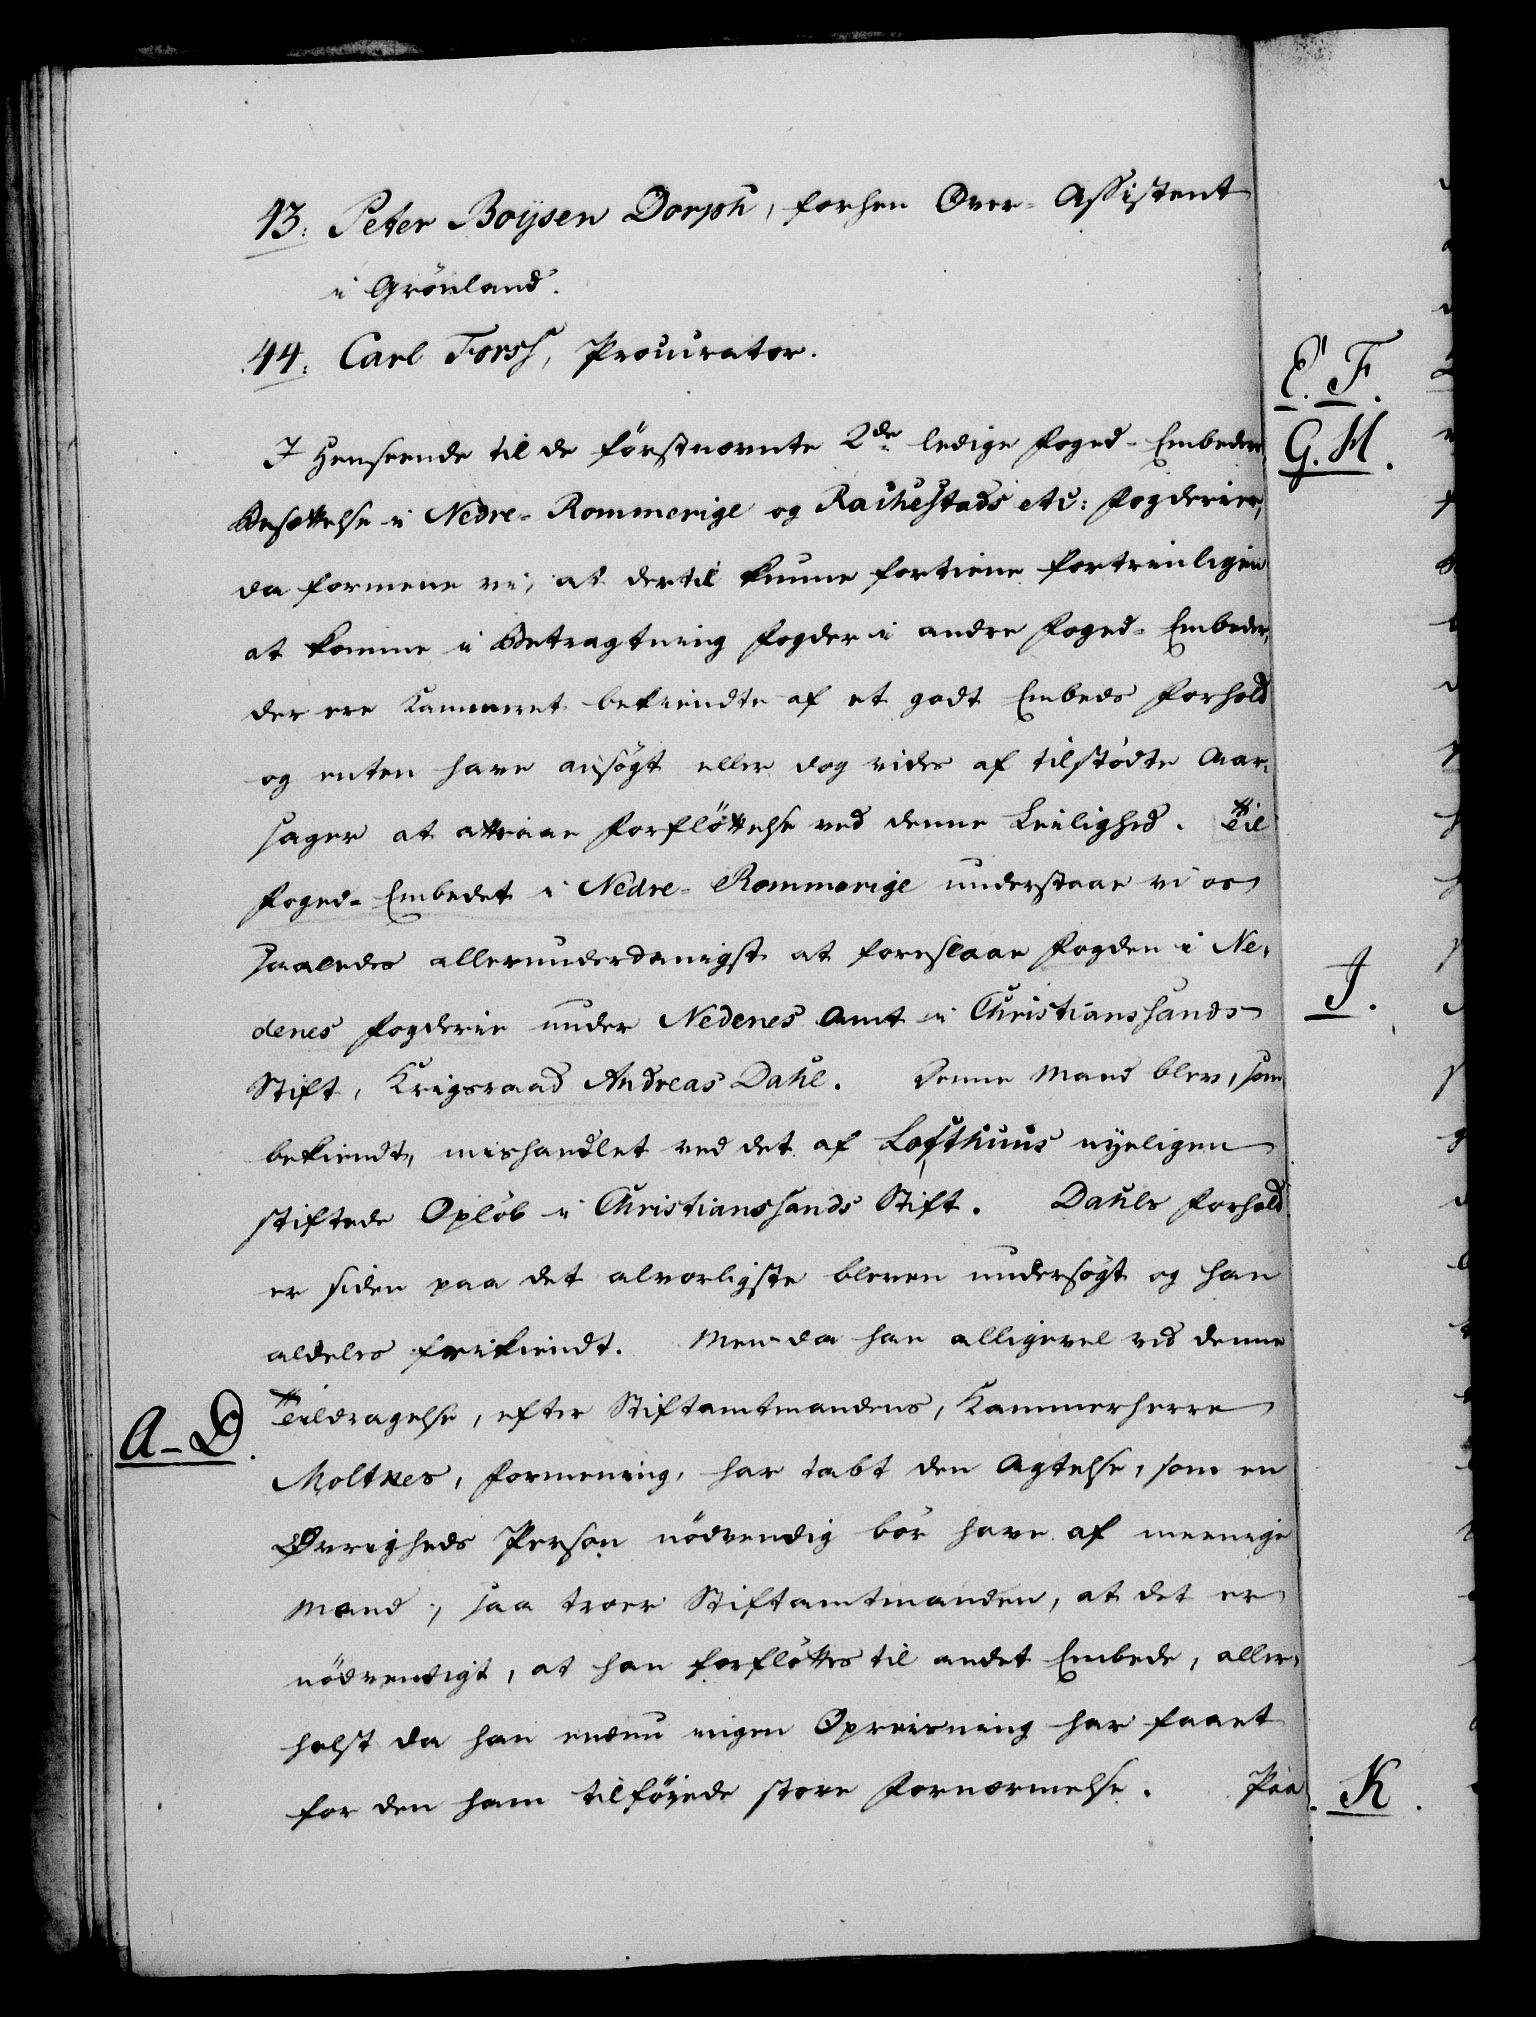 43. Peter Boÿsen Dorph, forhen Over-Assistent
i Grönland.
44. Carl Forsch, Procurator.
I Henseende til de förstnævnte 2de ledige Foged-Embeders
Besættelse i Nedre-Rommerige og Rachestads etc: Fogderier,
da formene vi, at dertil kunne fortiene fortrinligen
at komme i Betragtning Fogder i andre Foged-Embeder,
der ere Kammeret bekiendte af et godt Embeds Forhold
og enten have ansögt eller dog vides af tilstödte Aar-
sager at attraae Forflöttelse ved denne Leilighed. Til
Foged-Embedet i Nedre-Rommerige understaae vi os
saaledes allerunderdanigst at foreslaae Fogden i Ne-
denes Fogderie under Nedenes Amt i Christianssands
Stift, Krigsraad Andreas Dahl. Denne Mand blev, som
bekiendt, mishandlet ved det af Lofthuus nyeligen
stiftede Oplöb i Christianssands Stift. Dahls Forhold
er siden paa det alvorligste bleven undersögt og han
aldeles frikiendt. Men da han alligevel ved denne
Tildragelse, efter Stiftamtmandens, Kammerherre
Moltkes, Formening, har tabt den Agtelse, som en
Øvrigheds Person nödvendig bör have af meenige
Mand, saa troer Stiftamtmanden, at det er
nödvendigt, at han forflöttes til andet Embede, aller-
helst da han endnu ingen Opreisning har faaet
for den ham tilföiede store Fornærmelse. Paa
A-D.
E. F.
G. H.
I.
K.